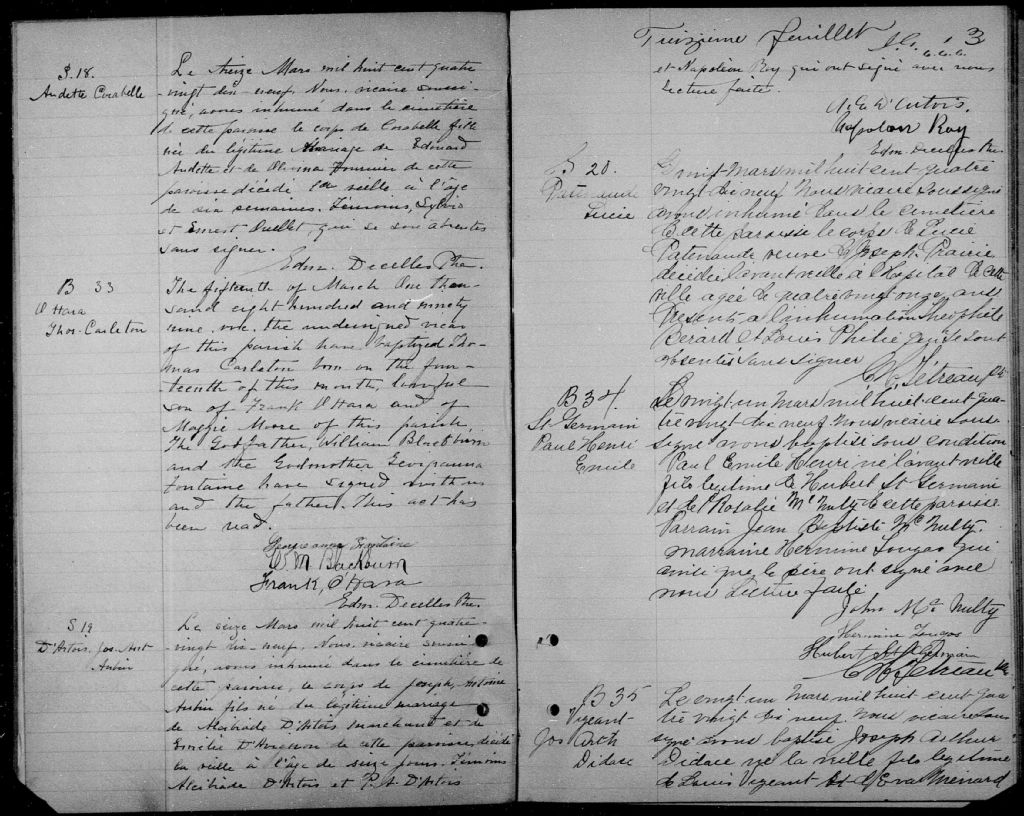 S. 18.
Audette Corabelle
Le treize Mars mil huit cent quatre
vingt dix-neuf. Nous, vicaire soussi-
gné, avons inhumé dans le cimetière
de cette paroisse le corps de Corabelle fille
née du légitime Mariage de Edouard
Audette et de Olivina Fournier de cette
paroisse décédé la veille à l'âge
de six semaines. Témoins, Sylvio
et Ernest Ouellet, qui se son absentes
sans signer.
Edm. Decelles Ptre.
B 33
O'Hara
Thos. Carleton
The fifteenth of March One thou-
sand eight hundred and ninety
nine, we, the undersigned vicar
of this parish have baptized Tho-
mas Carleton born on the four-
teenth of this month, lawful
son of Frank O'Hara and of
Maggie Moore of this parish,
The Godfather, William Blackburn
and the Godmother Georgianna
Fontaine have signed with us
and the father. This act has
been read.
Georgeanna Frontaine
W. M Blackburn
Frank, O'Hara
Edm. Decelles Ptre.
S 19
D'Artois, Jos. Ant
Aubin
Le seize Mars mil huit cent quatre-
vingt dix-neuf. Nous, vicaire soussi-
gné, avons inhumé dans le cimetière de
cette paroisse, le corps de Joseph, Antoine
Aubin fils né du légitime mariage
de Alcibiade D'Artois marchand et de
de cette paroisse, décédé
la veille à l'âge de seize jours. Témoins
Alcibiade D'Artois et P. A. D'Artois
Treizième feuillet 13
et Napoléon Roy qui ont signé avec nous
Lecture faite.
D'Artois.
Napoleon Roy
Edm. Decelles Ptre
S 20.
Lucie
Le vingt Mars mil huit cent quatre
vingt dix neuf Nous vicaire soussigné
avons inhumé dans le cimetière
de cette paroisse le corps de Lucie
Patenaude veuve de Joseph Prairie
décédée l'avant veille à l'hospital de cette
ville agée de quatre vingt onze ans
Présents à l'inhumation Théophile
Bérard et Louis Philie qui se sont
absentés sans signer
Tetreau Ptr
B 34.
St Germain
Paul Henri
Emile
Le vingt un Mars mil huit cent qua-
tre vingt dix neuf Nous vicaire sous-
signé avons baptisé sous condition
Paul Emile Henri né l'avant veille
fils legitime de Hubert St Germain
et de Rosalie Mc Nulty de cette paroisse
Parrain Jean Baptiste Mc Nulty
marraine Hermine Lougas qui
ainsi que le père ont signé avec
nous Lecture faite
John Mc Nulty
Hermine Lougas
Hubert St Germain
Tetreau Ptr
B 35
Vigeant
Jos Arth
Didace
Le vingt un Mars mil huit cent qua
tre vingt dix neuf Nous vicaire sous
signé avons baptisé Joseph Arthur
Didace né la veille fils légitime
de Louis Vigeant et d'Eva Ménard